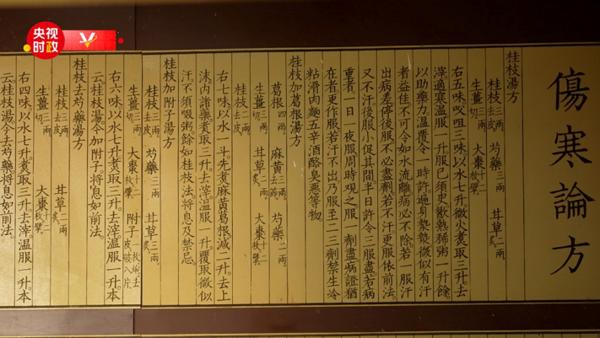 央视
时政
傷寒論方
桂枝湯方
桂枝三兩去皮 芍藥三兩 甘草二兩炙
生薑三兩 大棗十二枚擘
右五味㕮咀三味以水七升微火煮取三升去
滓適寒溫服一升服已須臾歠熱稀粥一升餘
以助藥力溫覆令一時許遍身漐漐微似有汗
者益佳不可令如水流離病必不除若一服汗
出病差停後服不必盡劑若不汗更服依前法
又不汗後服小促其間半日許令三服盡若病
重者一日一夜服周時觀之服一劑盡病證猶
在者更作服若汗不出乃服至二三劑禁生冷
粘滑肉麵五辛酒酪臭惡等物
桂枝加葛根湯方
葛根四兩 麻黃三兩 芍藥二兩
生薑三兩 甘草二兩 大棗十二枚擘
桂枝二兩去皮
右七味以水一斗先煮麻黃葛根減二升去上
沫內諸藥煮取三升去滓溫服一升覆取微似
汗不須啜粥餘如桂枝法將息及禁忌
桂枝加附子湯方
桂枝三兩去皮 芍藥三兩 甘草炙
生薑三兩 大棗十二枚擘 附子一枚炮去皮破八片
右六味以水七升煮取三升去滓溫服一升本
云桂枝湯今加附子將息如前法
桂枝去芍藥湯方
桂枝三兩去皮 甘草二兩炙
生薑三兩 大棗十二枚擘
右四味以水七升煮取三升去滓溫服一升本
云桂枝湯今去芍藥將息如前法